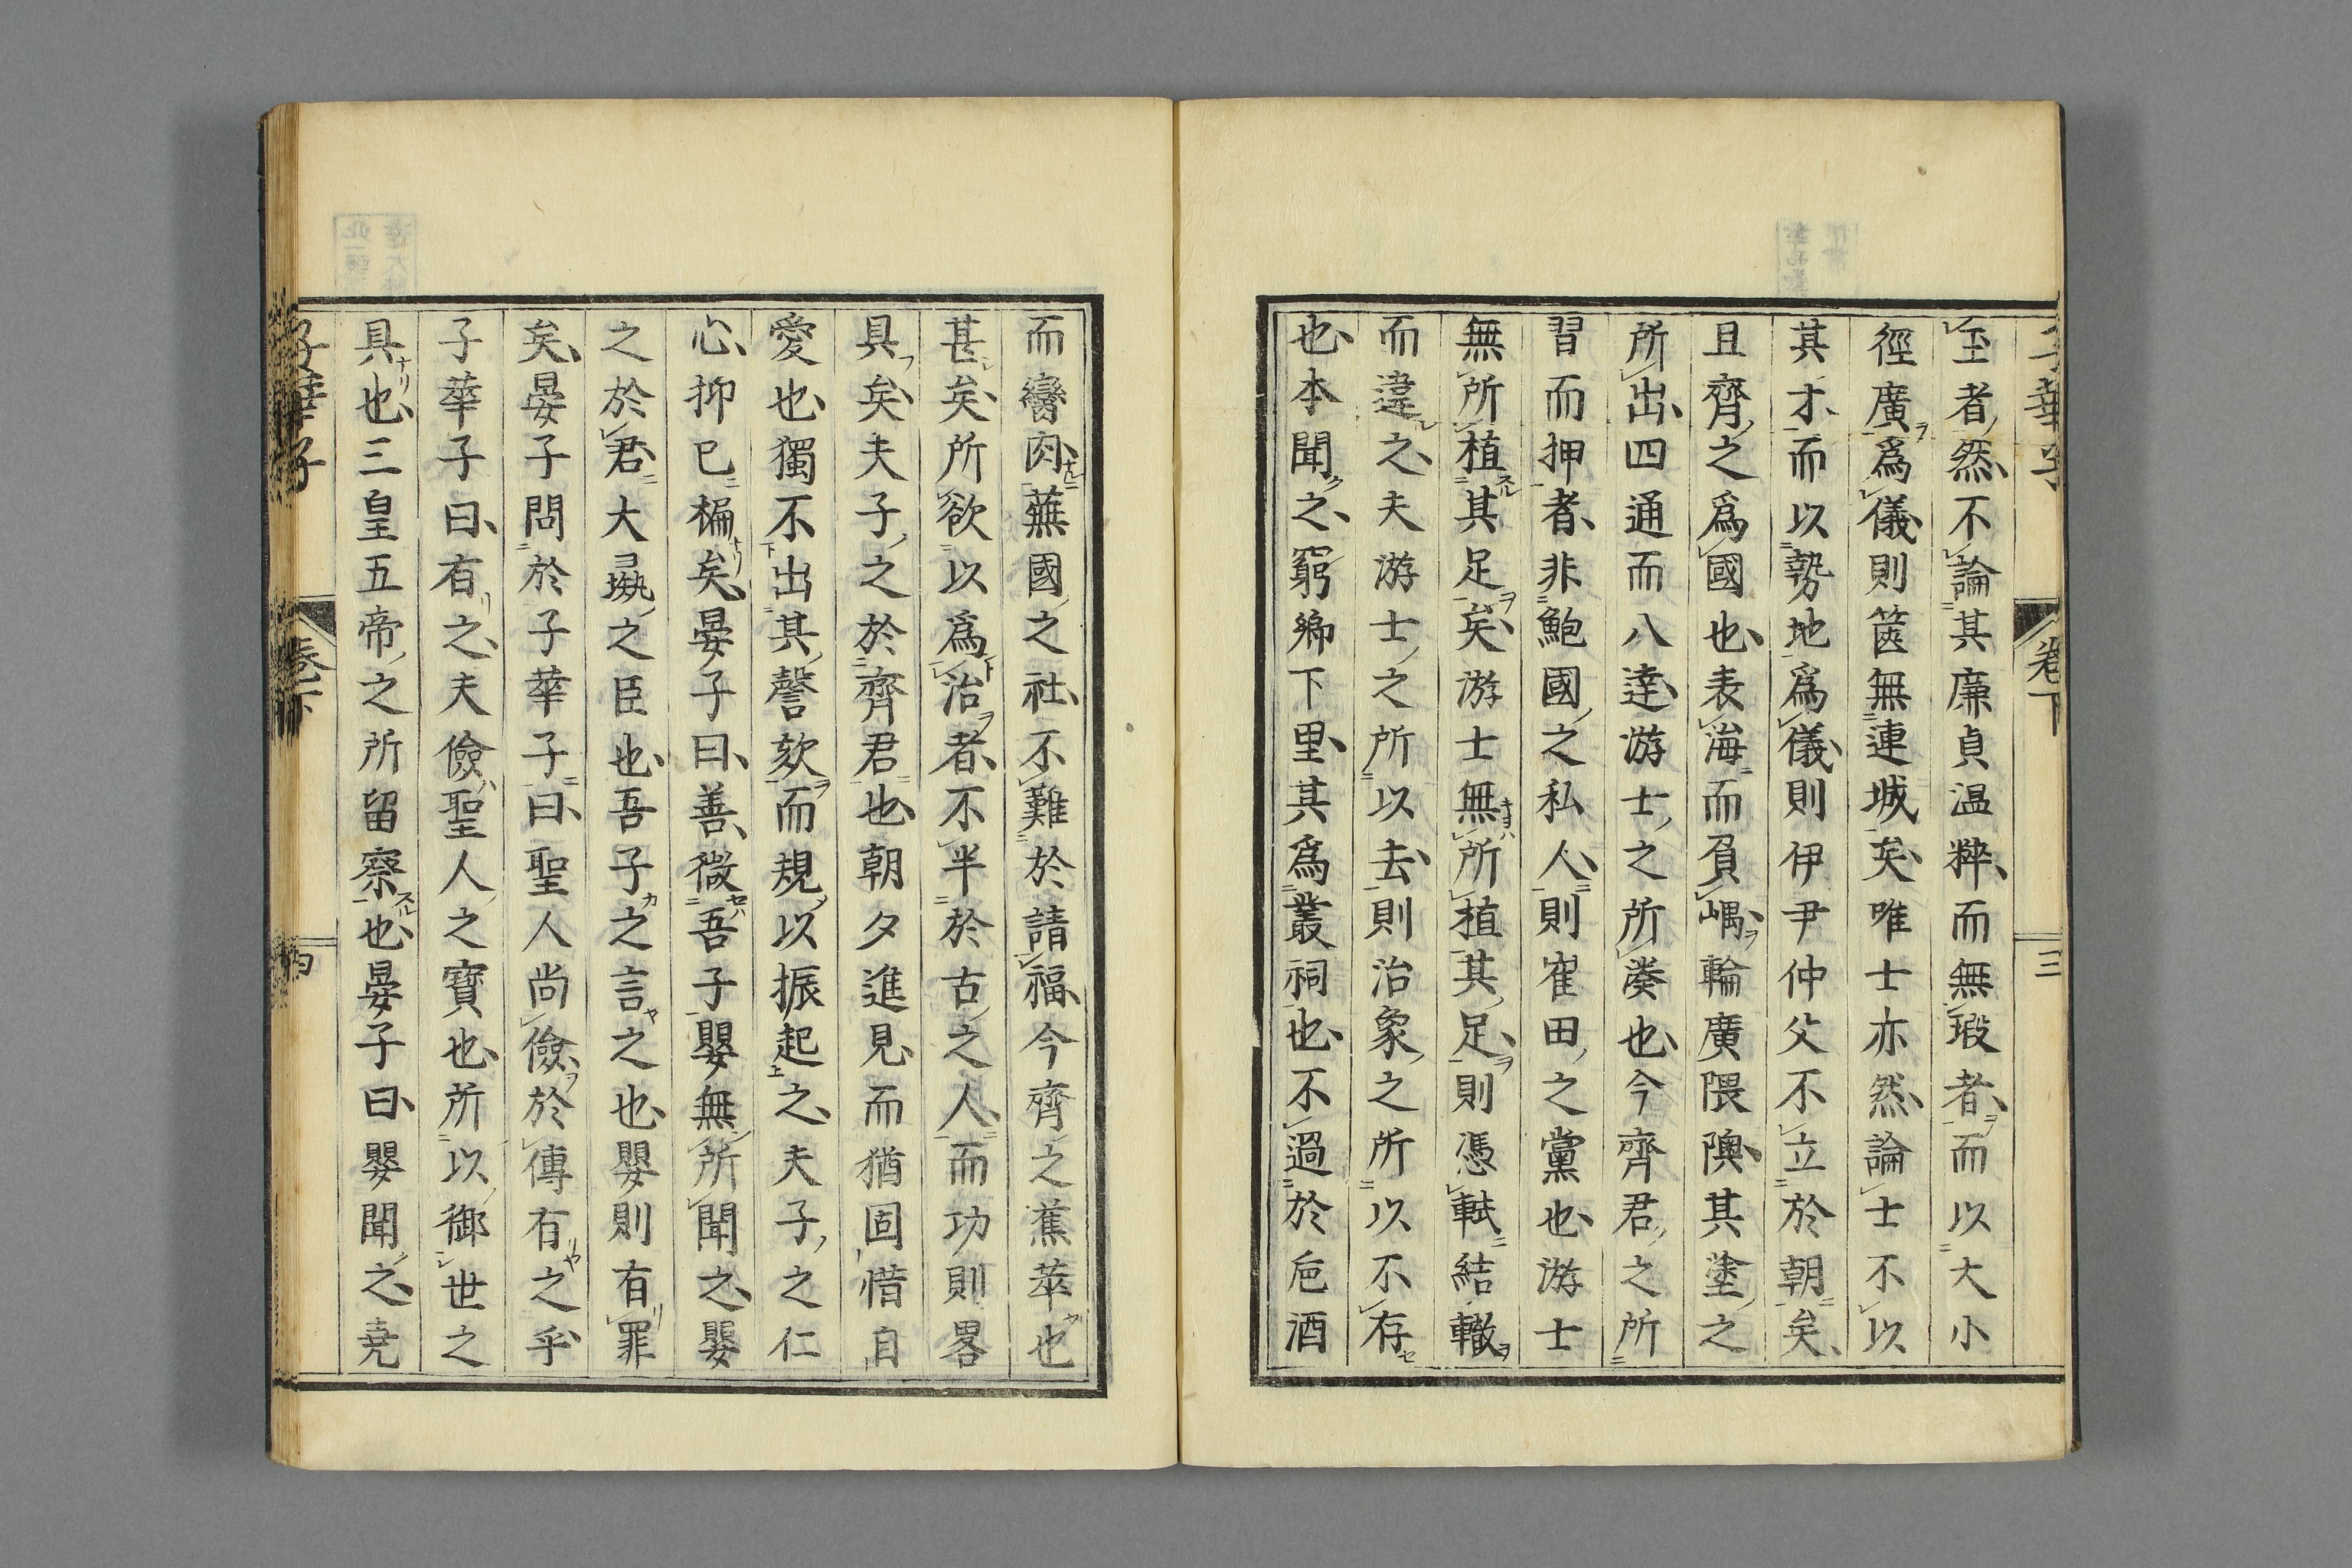 子華子 卷下 三
至者然不論其廉貞温粹而無瑕者而以大小
徑廣爲儀則篋無連城矣唯士亦然論士不以
其才而以勢地爲儀則伊尹仲父不立於朝矣
且齊之爲國也表海而負嵎輪廣隈隩其塗之
所出四通而八達游士之所湊也今齊君之所
習而押者非鮑國之私人則崔田之黨也游士
無所植其足矣游士無所植其足則憑軾結轍
而違之夫游士之所以去則治象之所以不存
也本聞之窮鄉下里其爲叢祠也不過於巵酒
而臠肉蕪國之社不難於請福今齊之蕉萃也
甚矣所欲以爲治者不半於古之人而功則畧
具矣夫子之於齊君也朝夕進見而猶固惜自
愛也獨不出其謦欬而規以振起之夫子之仁
心抑已褊矣晏子曰善微吾子嬰無所聞之嬰
之於君大之臣也吾子之言之也嬰則有罪
矣晏子問於子華子曰聖人尚儉於傳有之乎
子華子曰有之夫儉聖人之寶也所以御世之
具也三皇五帝之所留察也晏子曰嬰聞之堯
子華子 卷下 四